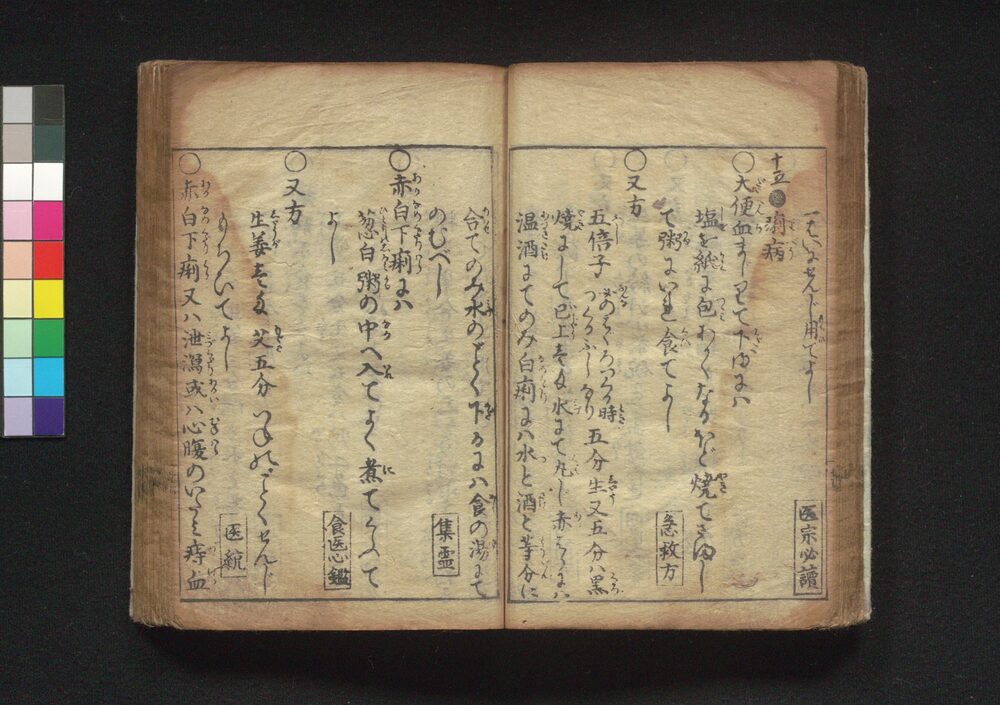 一もんめせんじ用てよし
医宗必讀
十五 痢病
〇大便血まじりて下るには
塩を紙に包わかくなるほど焼てさまし
て粥にいれ食てよし
急救方
〇又方
五倍子 五分生又五分ハ黒
焼にして已上をよく水にて丸じ赤はらにハ
温酒にてのみ白痢にハ水と酒と等分に
合てのみ水のごとく下るにハ食の湯にて
のむべし
集霊
〇赤白下痢にハ
葱白粥の中へ入てよく煮てくらいて
よし
食医心鑑
〇又方
生姜 艾五分 つねのごとくせんじ
もちいてよし
医統
〇赤白下痢又ハ泄瀉或ハ心腹のいたみ痔血